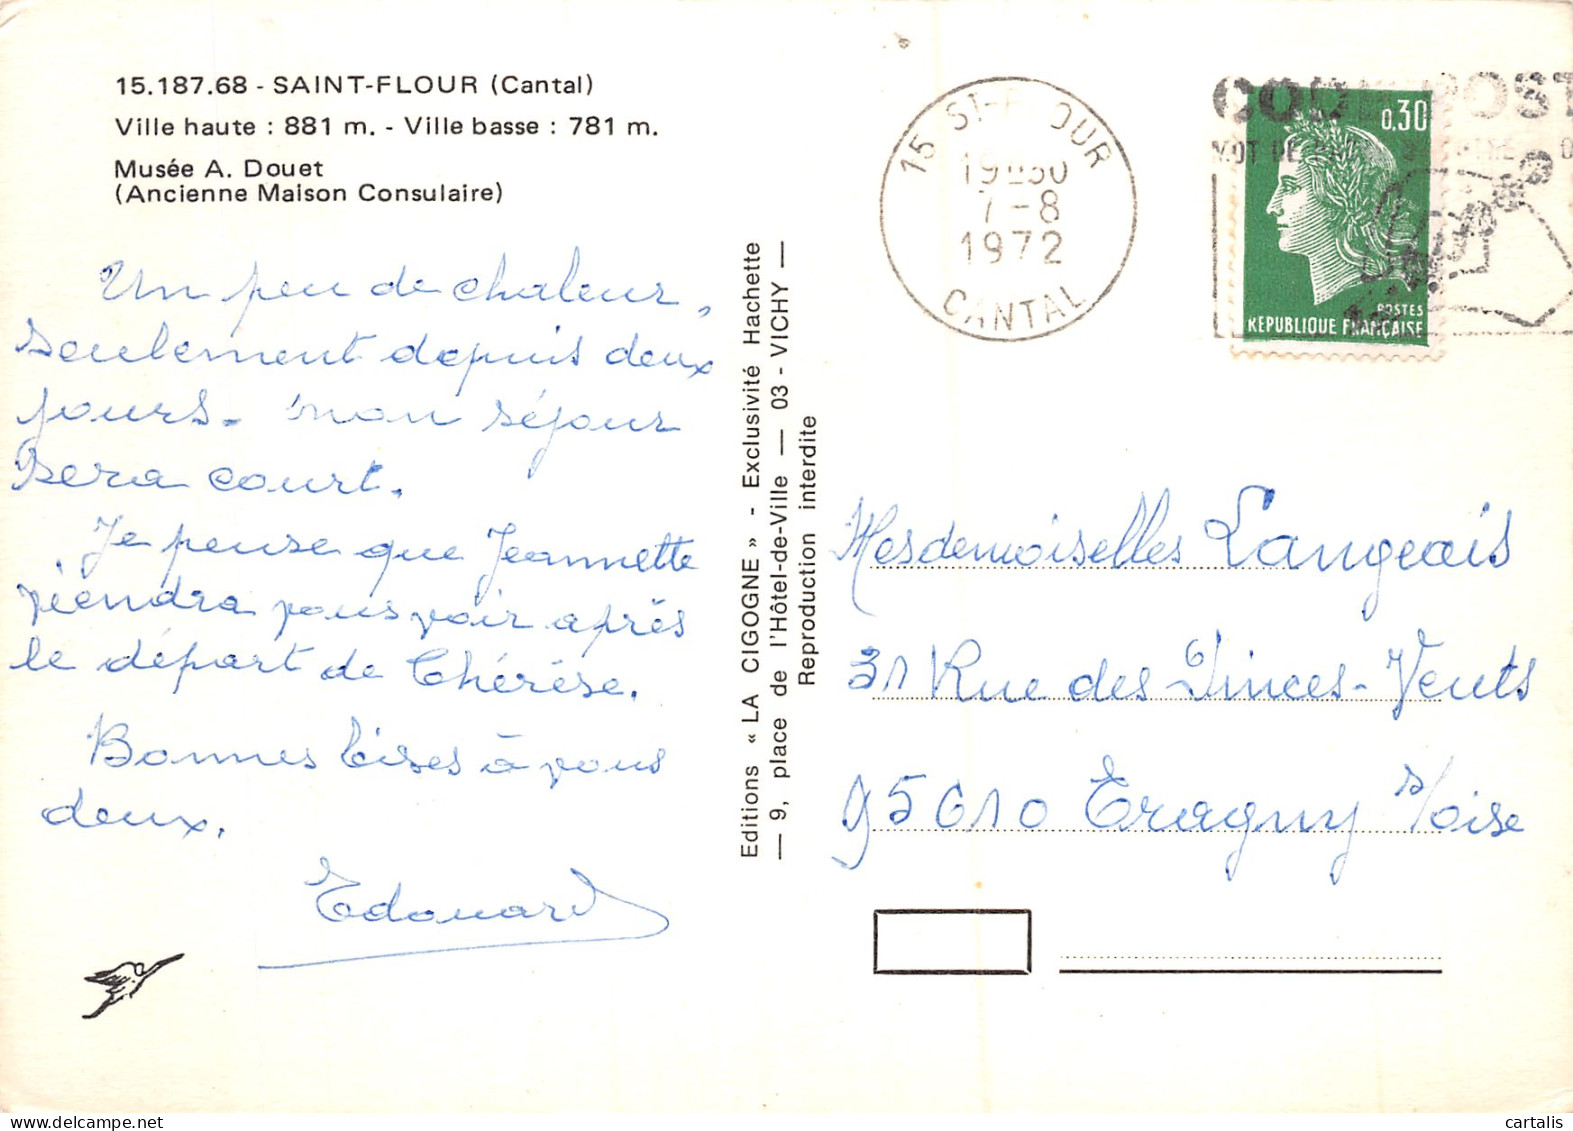 15.187.68 - SAINT-FLOUR (Cantal)
Ville haute : 881 m. - Ville basse : 781 m.
Musée A. Douet
(Ancienne Maison Consulaire)
Un peu de chaleur,
seulement depuis deux
jours. Mon séjour
sera court.
Je pense que Jeannette
viendra vous voir après
le départ de Thérèse.
Bonnes bises à vous
deux.
Edouard
Editions « LA CIGOGNE » - Exclusivité Hachette
— 9, place de l'Hôtel-de-Ville — 03 - VICHY —
Reproduction interdite
15 ST-FLOUR
7-8
1972
CANTAL
0,30
POSTES
REPUBLIQUE FRANÇAISE
Mesdemoiselles Langeais
31 Rue des Pinces-Vents
95610 Eragny s/oise
cartalis delcampe.net